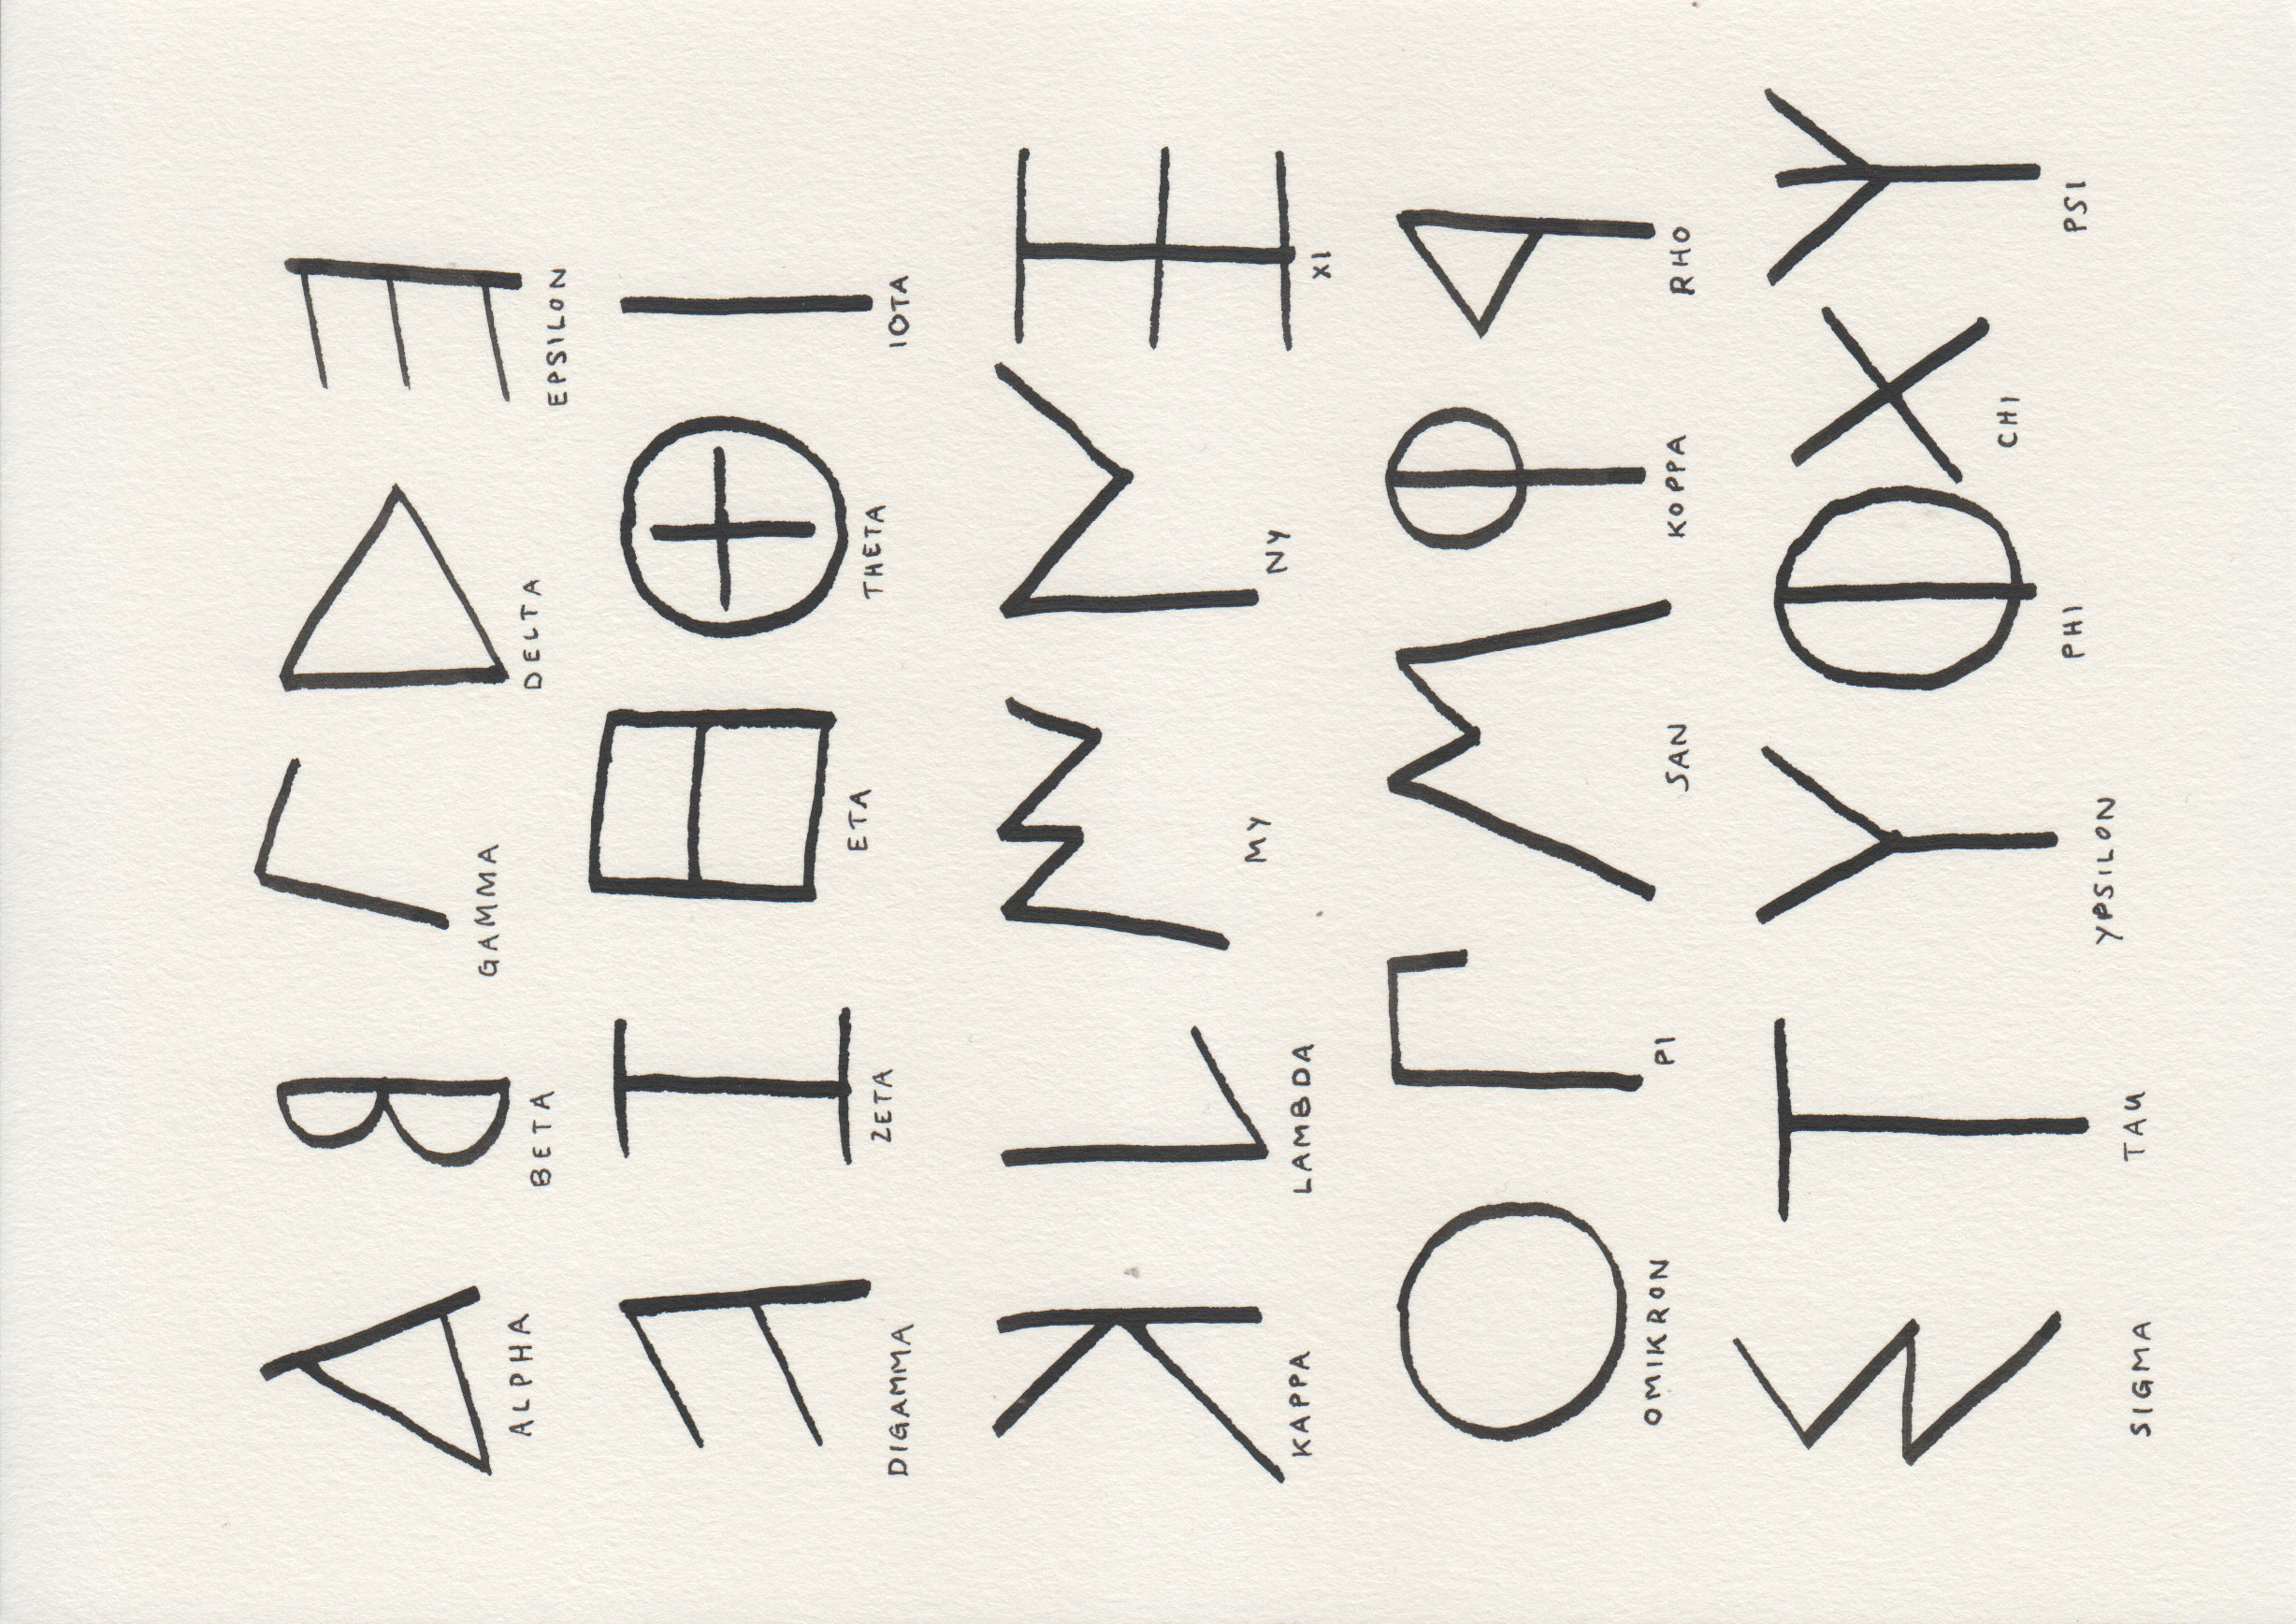 Α Β Γ Δ Ε
ALPHA BETA GAMMA DELTA EPSILON
Ϝ Ζ Η Θ Ι
DIGAMMA ZETA ETA THETA IOTA
Κ Λ Μ Ν Ξ
KAPPA LAMBDA MY NY XI
Ο Π Ϻ Ϙ Ρ
OMIKRON PI SAN KOPPA RHO
Σ Τ Υ Φ Χ Ψ
SIGMA TAU YPSILON PHI CHI PSI